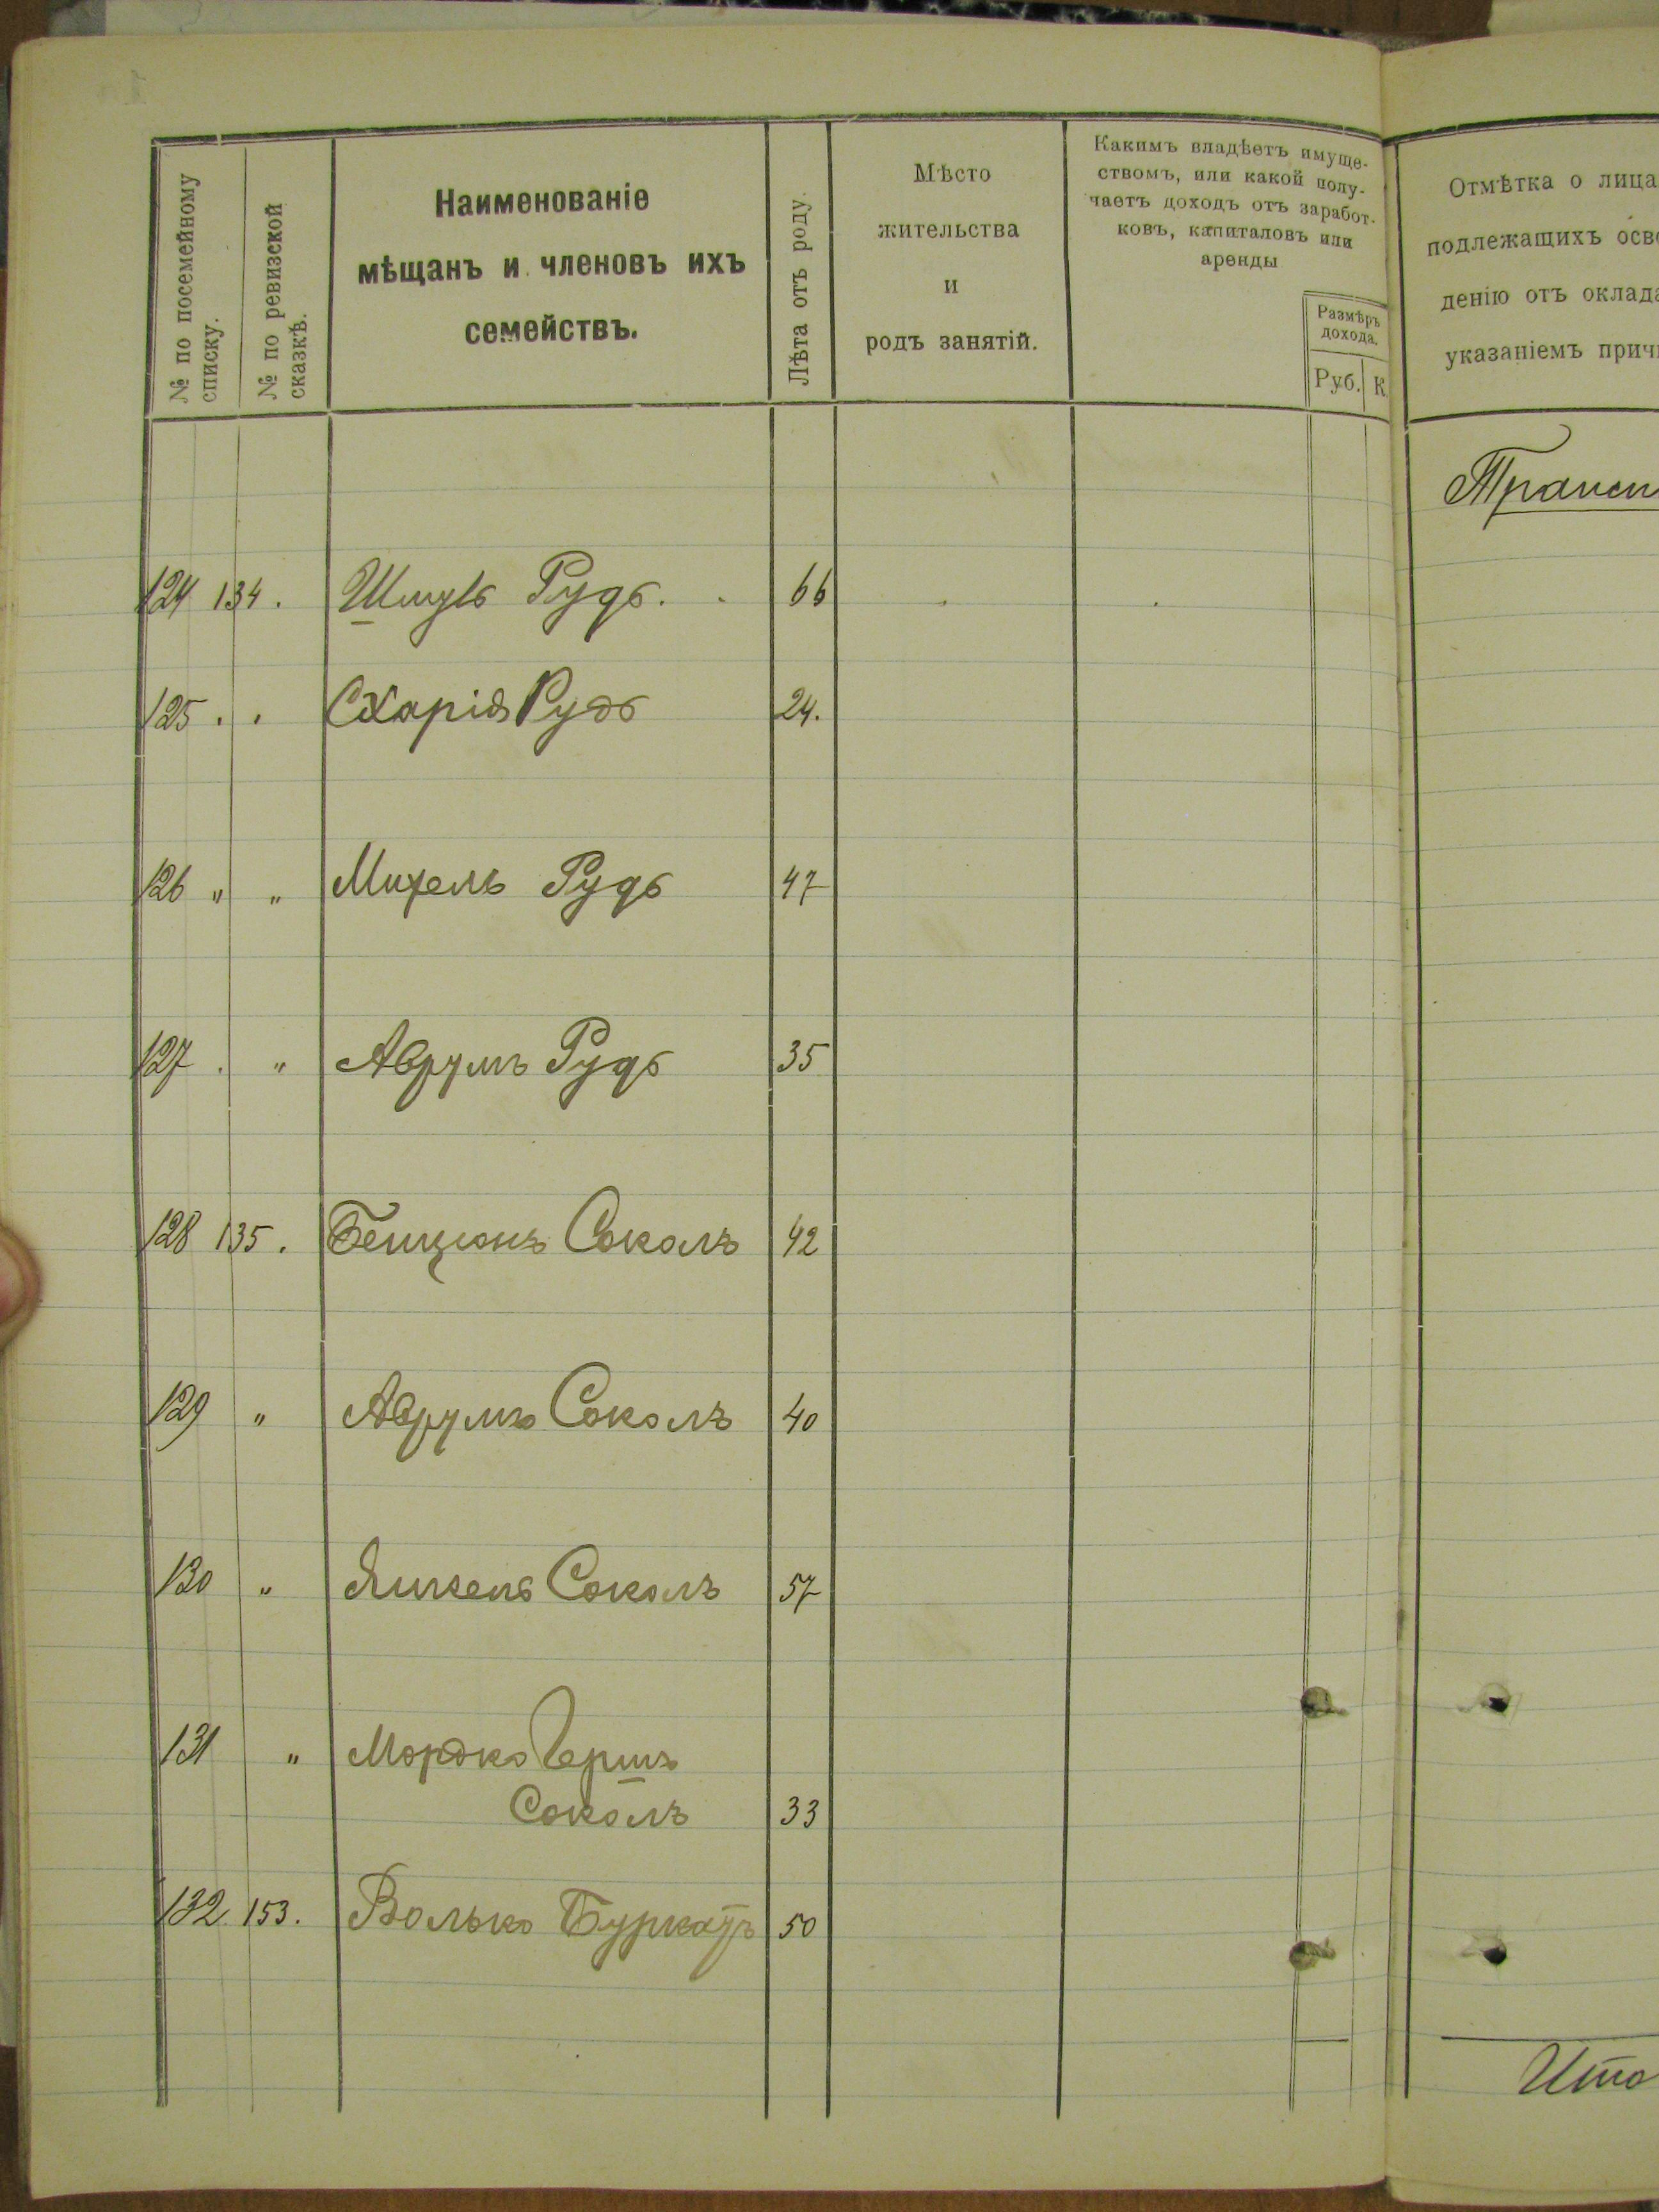 № по посемейному
списку.
№ по ревизской
сказкѣ.
Наименованіе
мѣщанъ и членовъ ихъ
семействъ.
Лѣта отъ роду.
Мѣсто
жительства
и
родъ занятій.
Какимъ владѣетъ имуще-
ствомъ, или какой полу-
чаетъ доходъ отъ заработ-
ковъ, капиталовъ или
аренды
Размѣръ
дохода.
Руб. К.
Отмѣтка о лица
подлежащихъ осво
денію отъ оклада
указаніемъ причи
Трансп
124 134. Шмуль Рудь. 66
125 . . Схарія Рудь 24.
126 „ „ Михель Рудь 47
127 . „ Аврумъ Рудь 35
128 135. Бенціонъ Соколъ 42
129 „ Аврумъ Соколъ 40
130 „ Янкель Соколъ 57
131 „ Мордко Гершъ
Соколъ 33
132. 153. Волько Буркатъ 50
Ито